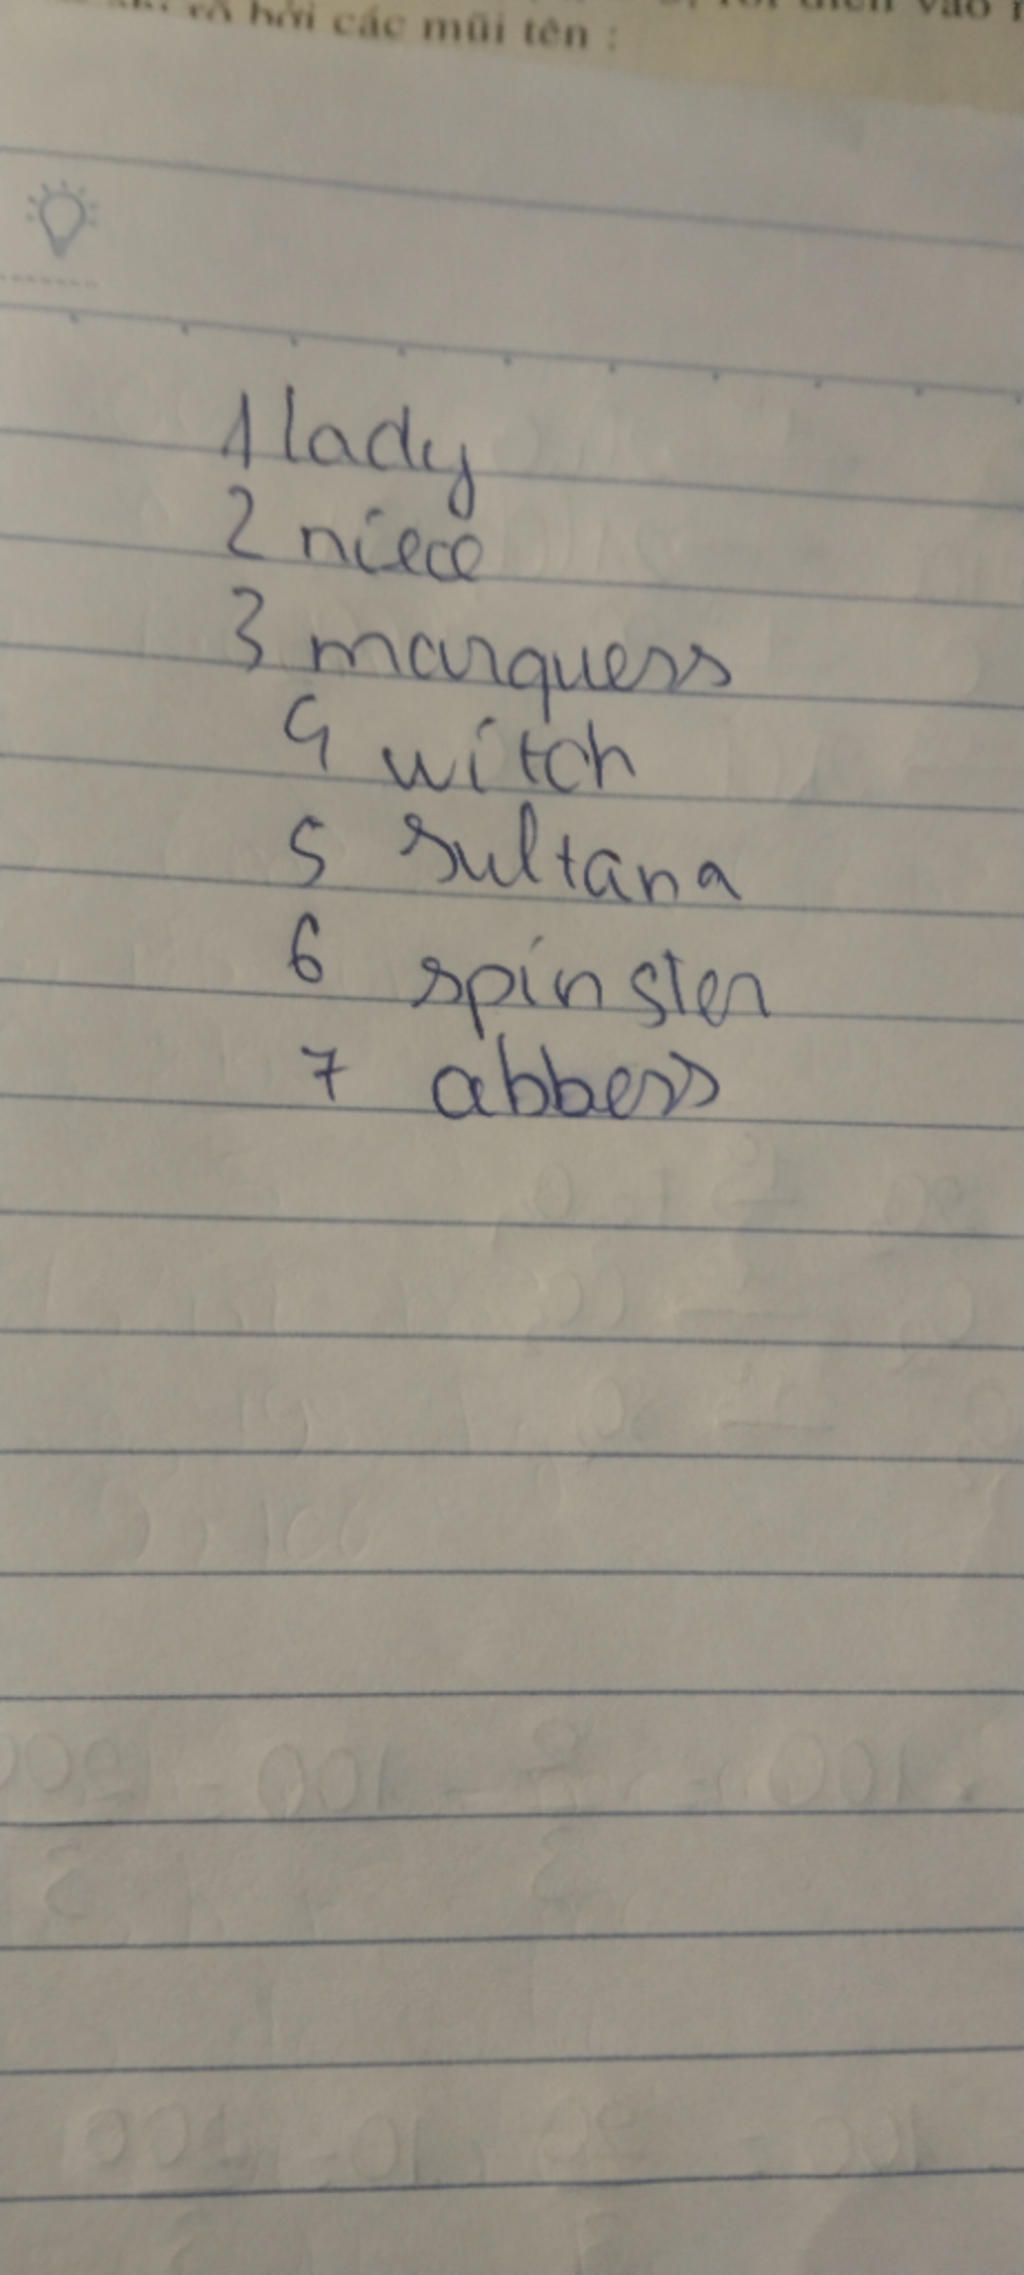 bởi các mũi tên :
1 lady
2 niece
3 marquess
4 witch
5 sultana
6 spinster
7 abbess